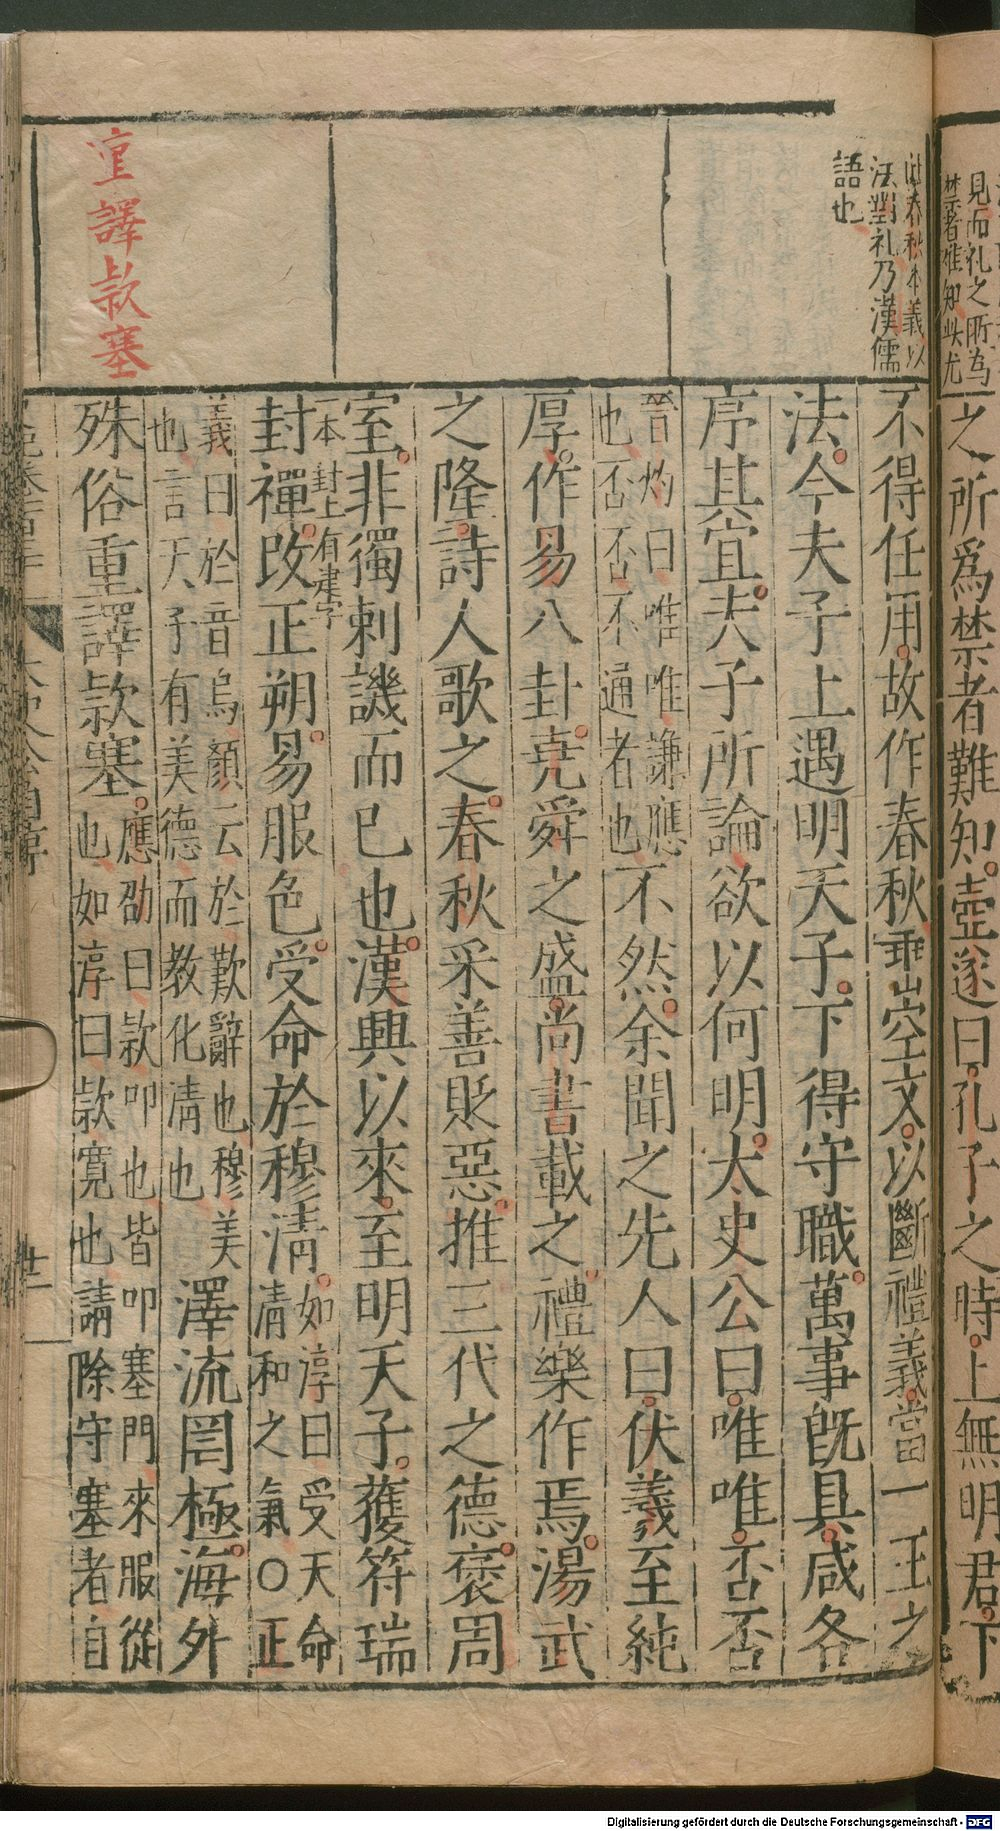 見而礼之所為
禁者难知此尤
之所爲禁者難知壺遂曰孔子之時上無明君下
此春秋本義以
法對礼乃漢儒
語也
不得任用故作春秋垂空文以斷禮義當一王之
法今夫子上遇明天子下得守職萬事旣具咸各
序其宜夫子所論欲以何明太史公曰唯唯否否
晉灼曰唯唯謙應
也否否不通者也
不然余聞之先人曰伏羲至純
厚作易八卦堯舜之盛尚書載之禮樂作焉湯武
之隆詩人歌之春秋采善貶惡推三代之德褒周
室非獨刺譏而已也漢興以來至明天子獲符瑞
一本封上有建字
封禪改正朔易服色受命於穆淸
如淳曰受天命
清和之氣○正
義曰於音烏顏云於歎辭也穆美
也言天子有美德而教化清也
澤流罔極海外
殊俗重譯款塞
應劭曰款叩也皆叩塞門來服從
也如淳曰款寬也請除守塞者自
重譯款塞
太史公自序
廿一
Digitalisierung gefördert durch die Deutsche Forschungsgemeinschaft - DFG